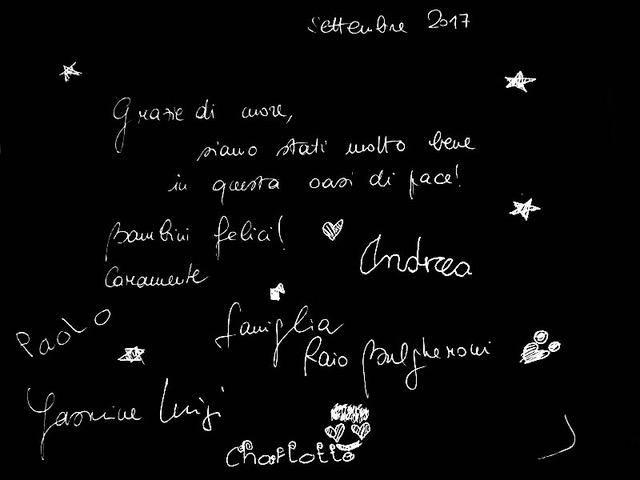 Settembre 2017
Grazie di cuore,
siamo stati molto bene
in questa oasi di pace!
Bambini felici!
Andrea
Caramente
Paolo
famiglia
Raio Bulgheroni
Jasmine Luigi
Charlotte